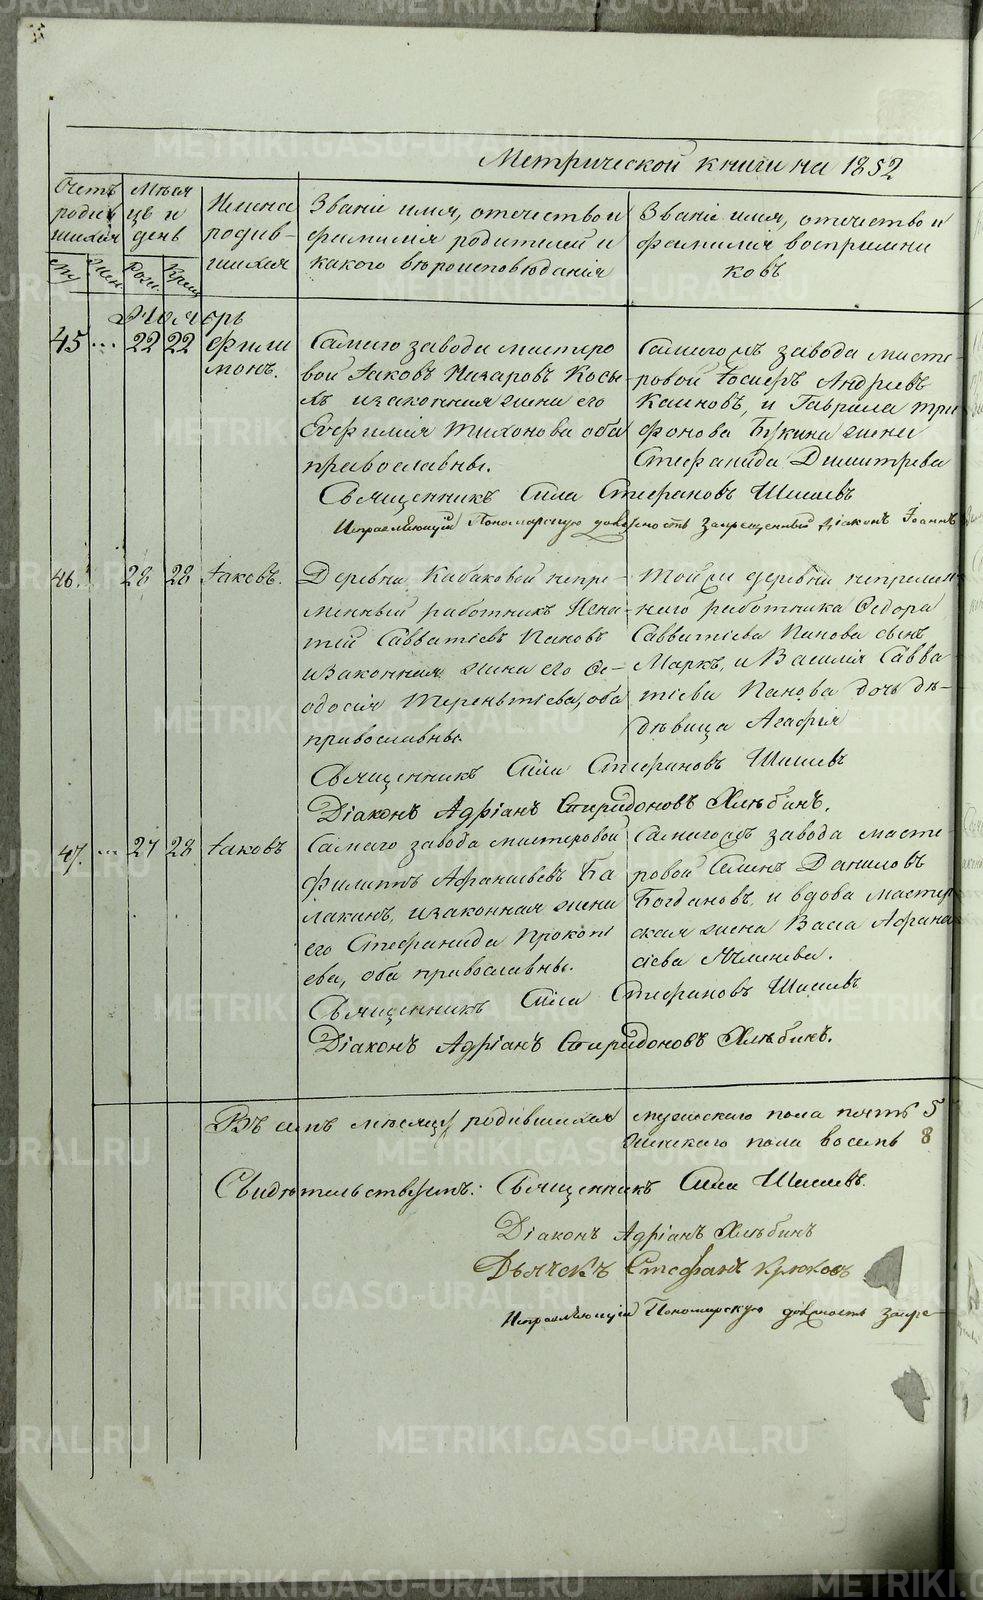 Метрической книги на 1852
Счетъ родив шихся
Мѣся це и день
Имена родив- шихся
Званіе имя, отечество и фамилія родителей и какого вѣроисповѣданія
Званіе имя, отечество и фамилія воспріемни ковъ
Муж Жен. Рожд. Крещ
45 ... 22 22 Фили монъ.
Самаго завода мастеро
вой Іаковъ Назаровъ Косы
хъ и законная жена его
Евфимія Тихонова оба
православны.
Самагожъ завода масте-
ровой Іосифъ Андреевъ
Каиновъ, и Гаврила Три
фонова Букина жена
Стефанида Димитрева
Священникъ Сила Стефановъ Шишевъ
Исправляющій Пономарскую должность запрещенный діаконъ Іоаннъ
46. 28 28 Іаковъ.
Деревни Кабаковой непре-
менный работникъ Игна-
тій Савватіевъ Пановъ
и законная жена его Ѳе-
одосія Терентіева, оба
православны.
Той же деревни непремен-
наго работника Ѳедора
Савватіева Панова сынъ
Маркъ, и Василія Савва
тіева Панова дочь дѣ-
дѣвица Агафія
Священникъ Сила Стефановъ Шишевъ
Діаконъ Адріанъ Спиридоновъ Хлѣбинъ.
47. ... 27 28 Іаковъ
Самаго завода мастеровой
Филиппъ Афанасьевъ Ба
лакинъ, и законная жена
его Стефанида Прокопі
ева, оба православны.
Самагожъ завода масте
ровой Семенъ Даниловъ
Богдановъ, и вдова мастер
ская жена Васса Афана
сіева
Священникъ Сила Стефановъ Шишевъ
Діаконъ Адріанъ Спиридоновъ Хлѣбинъ.
Въ семъ мѣсяцѣ родившихся мужескаго пола пять 5
женскаго пола восемь 8
Свидѣтельствуемъ: Священникъ Сила Шишевъ.
Діаконъ Адріанъ Хлѣбинъ
Дьячекъ Стефанъ Крюковъ
Исправляющій Пономарскую должность запре
METRIKI.GASO-URAL.RU